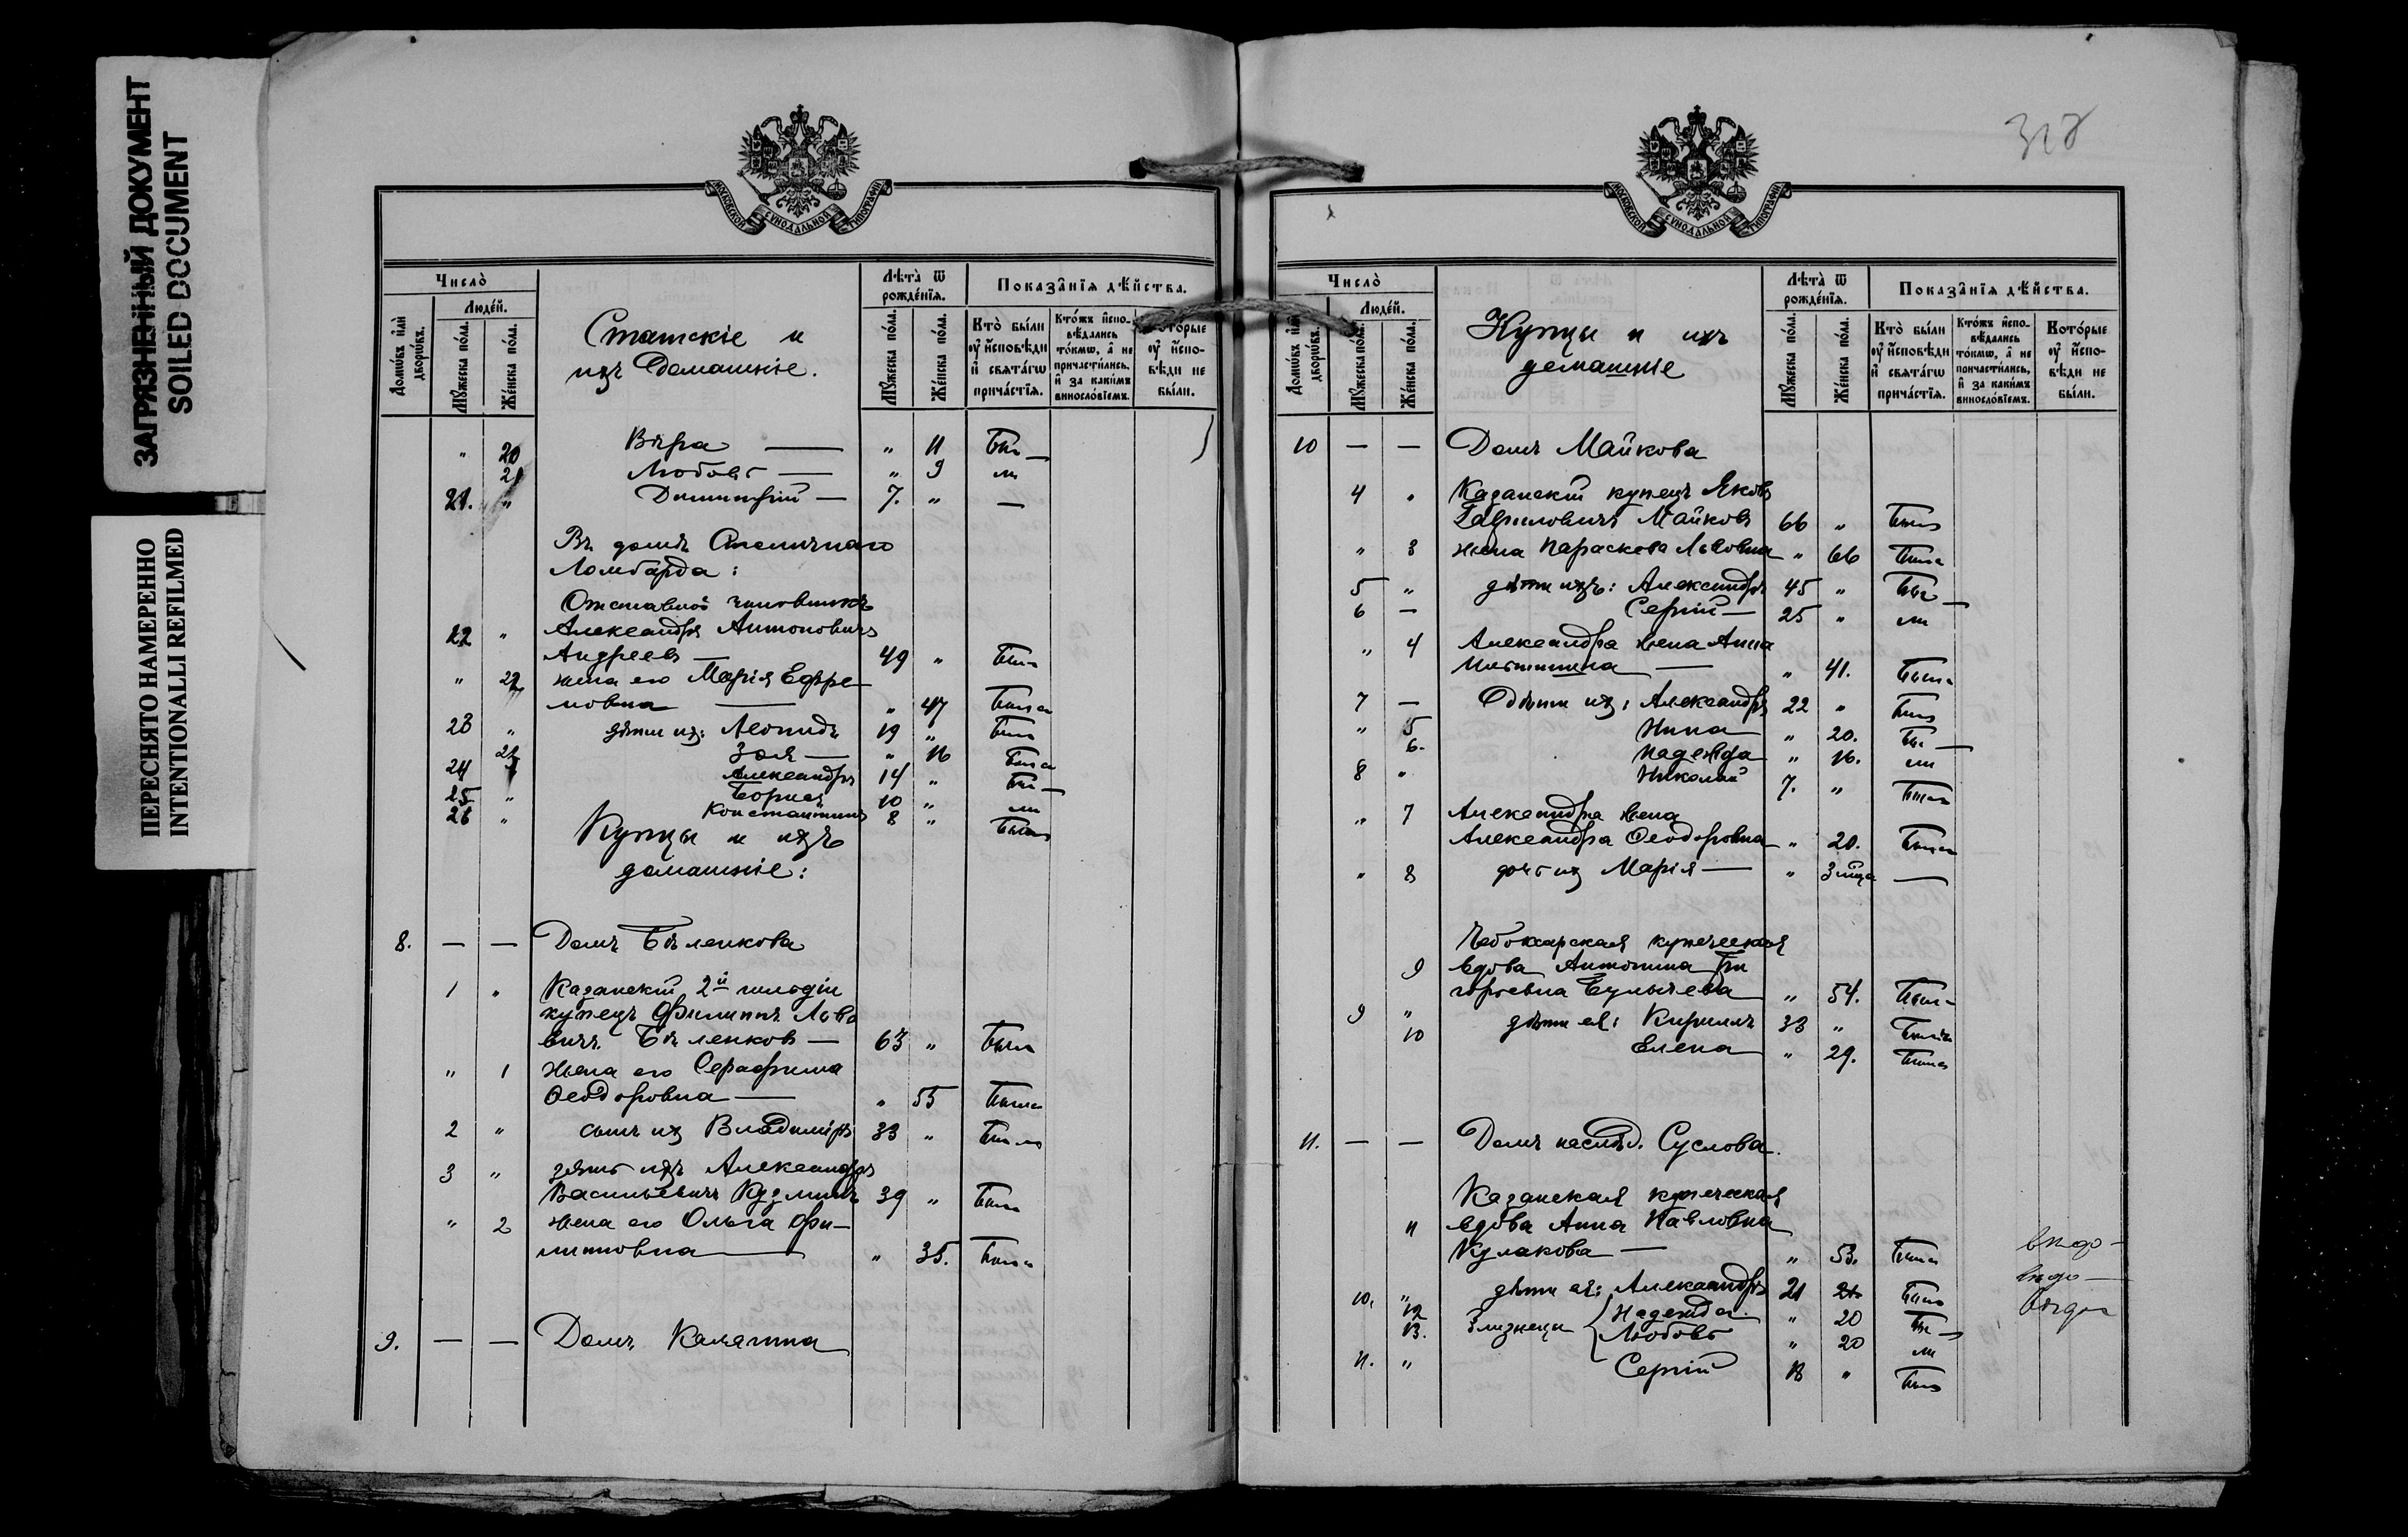 ЗАГРЯЗНЕННЫЙ ДОКУМЕНТ
SOILED DOCUMENT
ПЕРЕСНЯТО НАМЕРЕННО
INTENTIONALLI REFILMED
МОСКОВСКОЙ СУНОДАЛЬНОЙ ТИПОГРАФІИ
Число̀
Люде́й.
Домѡ́въ и҆лѝ дворѡ́въ.
Мꙋ́жеска по́ла.
Же́нска по́ла.
Статскіе и
ихъ Домашніе.
Лѣ́та ѿ рожде́нїѧ.
Мꙋ́жеска по́ла.
Же́нска по́ла.
Показа̂нїѧ дѣ́йства.
Кто̀ бы́ли ᲂу҆ и҆́сповѣди и҆ свѧта́гѡ прича́стїѧ.
Кто́жъ и҆спо-вѣ́дались то́кмѡ, а҆ не причасти́лись, и҆ за каки́мъ виносло́вїемъ.
Кото́рые ᲂу҆ и҆́спо-вѣди не бы́ли.
" 20 Вѣра — " 11 Бы—
21 Любовь — " 9 ли
21. " Димитрій — 7. " —
Въ домѣ Столичнаго
Ломбарда:
Отставной чиновникъ
22 " Александръ Антоновичъ
Андреевъ — 49 " Былъ
" 22 жена его Марія Ефре-
мовна — " 47 Была
23 " дѣти ихъ: Леонидъ 19 " Былъ
23 Зоя — " 16 Была
24 Александръ 14 " Бы—
25 " Борисъ 10 " ли
26 " Константинъ 8 " Былъ
Купцы и ихъ
домашніе:
8. — — Домъ Бѣленкова
1 " Казанскій 2й гильдіи
купецъ Филиппъ Льво
вичъ Бѣленковъ — 63 " Былъ
" 1 жена его Серафима
Ѳеодоровна — " 55 Была
2 " сынъ их Владиміръ 33 " Былъ
3 " зять ихъ Александръ
Васильевичъ Кузминъ 39 " Былъ
" 2 жена его Ольга Фи-
липповна — " 35. Была
9. — — Домъ Калягина
МОСКОВСКОЙ СУНОДАЛЬНОЙ ТИПОГРАФІИ
Число̀
Люде́й.
Домѡ́въ и҆лѝ дворѡ́въ.
Мꙋ́жеска по́ла.
Же́нска по́ла.
Купцы и ихъ
домашніе
Лѣ́та ѿ рожде́нїѧ.
Мꙋ́жеска по́ла.
Же́нска по́ла.
Показа̂нїѧ дѣ́йства.
Кто̀ бы́ли ᲂу҆ и҆́сповѣди и҆ свѧта́гѡ прича́стїѧ.
Кто́жъ и҆спо-вѣ́дались то́кмѡ, а҆ не причасти́лись, и҆ за каки́мъ виносло́вїемъ.
Кото́рые ᲂу҆ и҆́спо-вѣди не бы́ли.
10 — — Домъ Майкова
4 " Казанскій купецъ Яковъ
Гавриловичъ Майковъ 66 " Былъ
" 3 жена Параскева Львовна " 66 Была
5 " дѣти ихъ: Александръ 45 " Бы—
6 — Сергій — 25 " ли
" 4 Александра жена Анна
— " 41. Была
7 — дѣти их: Александръ 22 " Былъ
" 5 Нина " 20. Бы—
6. Надежда " 16. ли
8 " Николай 7. " Былъ
" 7 Александра жена
Александра Ѳеодоровна " 20. Была
" 8 дочь их Марія — " 3 мца —
Чебоксарская купеческая
9 вдова Антонина Гри
горьевна Булычева " 54. Была
9 " дѣти ея: Кириллъ 33 " Былъ
10 Елена " 29. Была
11. — — Домъ наслѣд. Суслова.
Казанская купеческая
11 вдова Анна Павловна
Кулакова — " 53. Была
10. " дѣти ея: Александръ 21 Былъ
12 Близнецы Надежда " 20 Бы—
13. Любовь " 20 ли
11. " Сергій 18 " Былъ